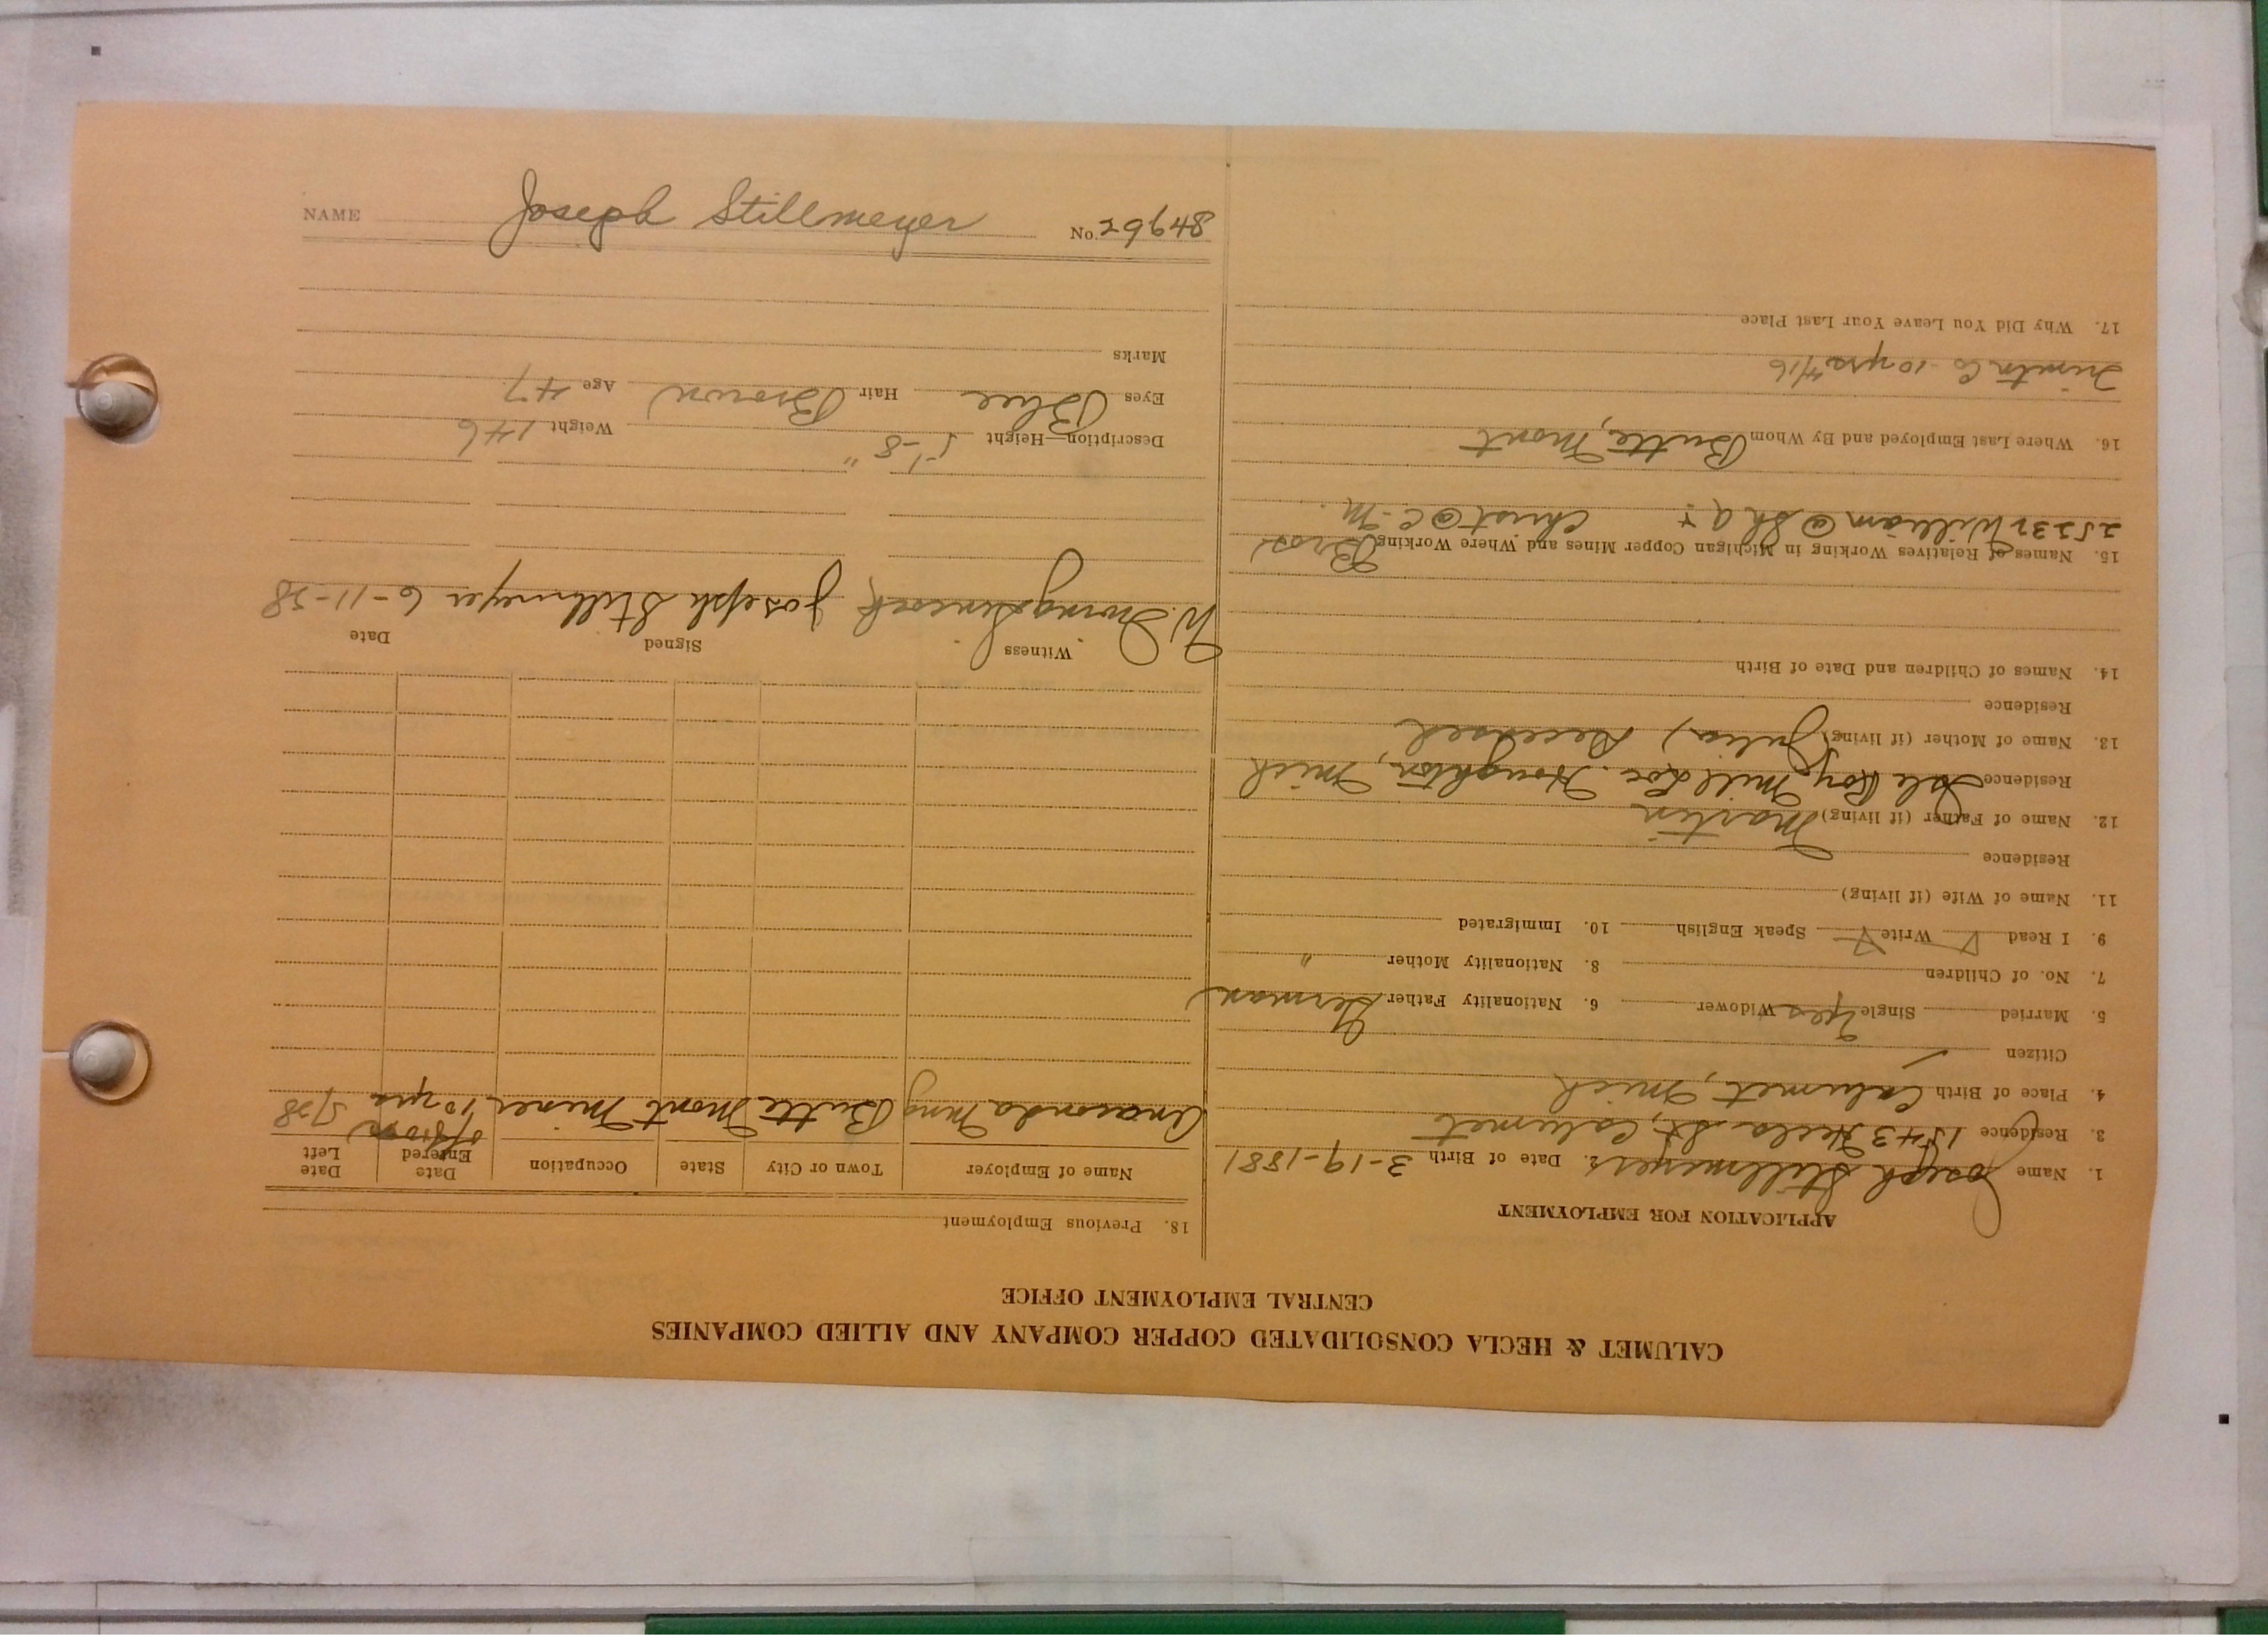 CALUMET & HECLA CONSOLIDATED COPPER COMPANY AND ALLIED COMPANIES
CENTRAL EMPLOYMENT OFFICE
APPLICATION FOR EMPLOYMENT
1. Name Joseph Stillmeyers 2. Date of Birth 3-19-1881
3. Residence 1543 Hecla St, Calumet
4. Place of Birth Calumet, Mich
Citizen ✓
5. Married Single Yes Widower 6. Nationality Father German
7. No. of Children 8. Nationality Mother "
9. I Read ✓ Write ✓ Speak English 10. Immigrated
11. Name of Wife (if living)
Residence
12. Name of Father (if living) Martin
Residence Isle Roy. Mill Loc. Houghton, Mich
13. Name of Mother (if living) Julia, Deceased
Residence
14. Names of Children and Date of Birth
15. Names of Relatives Working in Michigan Copper Mines and Where Working Bros.
William @ Christ @ C-M.
16. Where Last Employed and By Whom Butte, Mont
Co - 10 yrs
17. Why Did You Leave Your Last Place
18. Previous Employment
Name of Employer Town or City State Occupation Date Entered Date Left
Anaconda Mng Butte Mont Miner 10 yrs 5/28
Witness Signed Date
W. Joseph Stillmeyer 6-11-28
Description—Height 5'-8" Weight 146
Eyes Blue Hair Brown Age 47
Marks
NAME Joseph Stillmeyer No. 29648